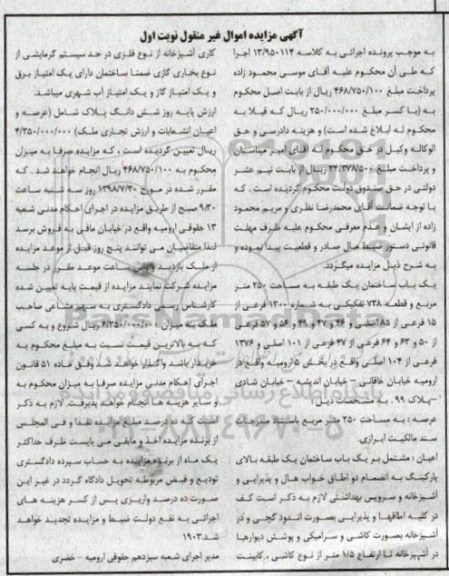 آگهی مزایده اموال غیر منقول نوبت اول
به موجب پرونده اجرائی به کلاسه ۱۳/۹۵۰۱۱۴ اجرا
که طی آن محکوم علیه آقای موسی محمود زاده
پرداخت مبلغ ۴۶۸/۷۵۰/۱۰۰ ریال از بابت اصل محکوم
به (با کسر مبلغ ۲۵۰/۰۰۰/۰۰۰ ریال که قبلا به
محکوم له ابلاغ شده است) و هزینه دادرسی و حق
الوکاله وکیل در حق محکوم له آقای امیر میناسیان
و پرداخت مبلغ ۳۴/۳۷۸/۵۰۰ ریال از بابت نیم عشر
دولتی در حق صندوق دولت محکوم گردیده است . که
با توجه ضمانت آقای محمدرضا نظری و مریم محمود
زاده از ایشان و عدم معرفی محکوم علیه ظرف مهلت
قانونی دستور ضبط مال صادر و قطعیت پیدا نموده و
به شرح ذیل مزایده میگردد.
یک باب ساختمان یک طبقه به مساحت ۲۵۰ متر
مربع و قطعه ۷۳۸ تفکیکی به شماره ۱۳۰۰ فرعی از
۱۵ فرعی از ۸۵ اصلی و ۴۶ و ۴۷ و ۴۹ و ۵۶ و ۵۷ فرعی
از ۵۰ و ۶۳ و ۶۴ فرعی از ۴۷ فرعی از ۱۰۱ اصلی و ۱۳۷۶
فرعی از ۱۰۴ اصلی واقع در بخش ۵ ارومیه واقع در
ارومیه خیابان خاقانی – خیابان اندیشه – خیابان شادی
–پلاک ۹۹ . به مشخصات ذیل :
عرصه : به مساحت ۲۵۰ متر مربع باستناد مندرجات
سند مالکیت ابرازی.
اعیان : مشتمل بر یک باب ساختمان یک طبقه بالای
پارکینگ به انضمام دو اطاق خواب هال و پذیرایی و
آشپزخانه و سرویس بهداشتی لازم به ذکر است کف
در کلیه اطاقها و پذیرایی بصورت اندود گچی و در
آشپزخانه بصورت کاشی و سرامیکی و پوشش دیوارها
در آشپزخانه تا ارتفاع ۱/۵ متر از نوع کاشی . کابینت
کاری آشپزخانه از نوع فلزی در حد سیستم گرمایشی از
نوع بخاری گازی ضمنا ساختمان دارای یک امتیاز برق
و یک امتیاز گاز و یک امتیاز آب شهری میباشد.
ارزش پایه روز شش دانگ پلاک شامل (عرصه و
اعیان انشعابات و ارزش تجاری ملک) ۴/۳۵۰/۰۰۰/۰۰۰
ریال تعیین گردیده است . که مزایده صرفا به میزان
محکوم به ۴۶۸/۷۵۰/۱۰۰ ریال انجام خواهد شد . که
مقرر شده در مورخ ۱۳۹۸/۷/۳۰ روز سه شنبه ساعت
۹:۳۰ صبح از طریق مزایده در اجرای احکام مدنی شعبه
۱۳ حقوقی ارومیه واقع در خیابان مافی به فروش برسد
لذا متقاضیان می توانند پنج روز قبل از موعد مزایده
از ملک بازدید و راس ساعت موعد مقرر در جلسه
مزایده شرکت نمایند مزایده از قیمت پایه تعیین شده
کارشناس رسمی دادگستری به سهم مشاعی صاحب
ملک به میزان ۴/۳۵۰/۰۰۰/۰۰۰ ریال شروع و به کسی
که به بالاترین قیمت نسبت به مبلغ محکوم به
خریدار باشد واگذار خواهد شد وفق ماده ۵۱ قانون
اجرای احکام مدنی مزایده صرفا به میزان محکوم به
و سایر هزینه ها انجام خواهد پذیرفت. لازم به ذکر
است که ده درصد مبلغ مزایده نقدا و فی المجلس
از برنده مزایده اخذ و مابقی می بایست ظرف حداکثر
یک ماه از برنده مزایده به حساب سپرده دادگستری
تودیع و قبض مربوطه تحویل دادگاه گردد در غیر این
صورت ده درصد واریزی پس از کسر هزینه های
اجرائی به نفع دولت ضبط و مزایده تجدید خواهد
شد.۱۹۰۳
مدیر اجرای شعبه سیزدهم حقوقی ارومیه – خضری
ParsNamadData